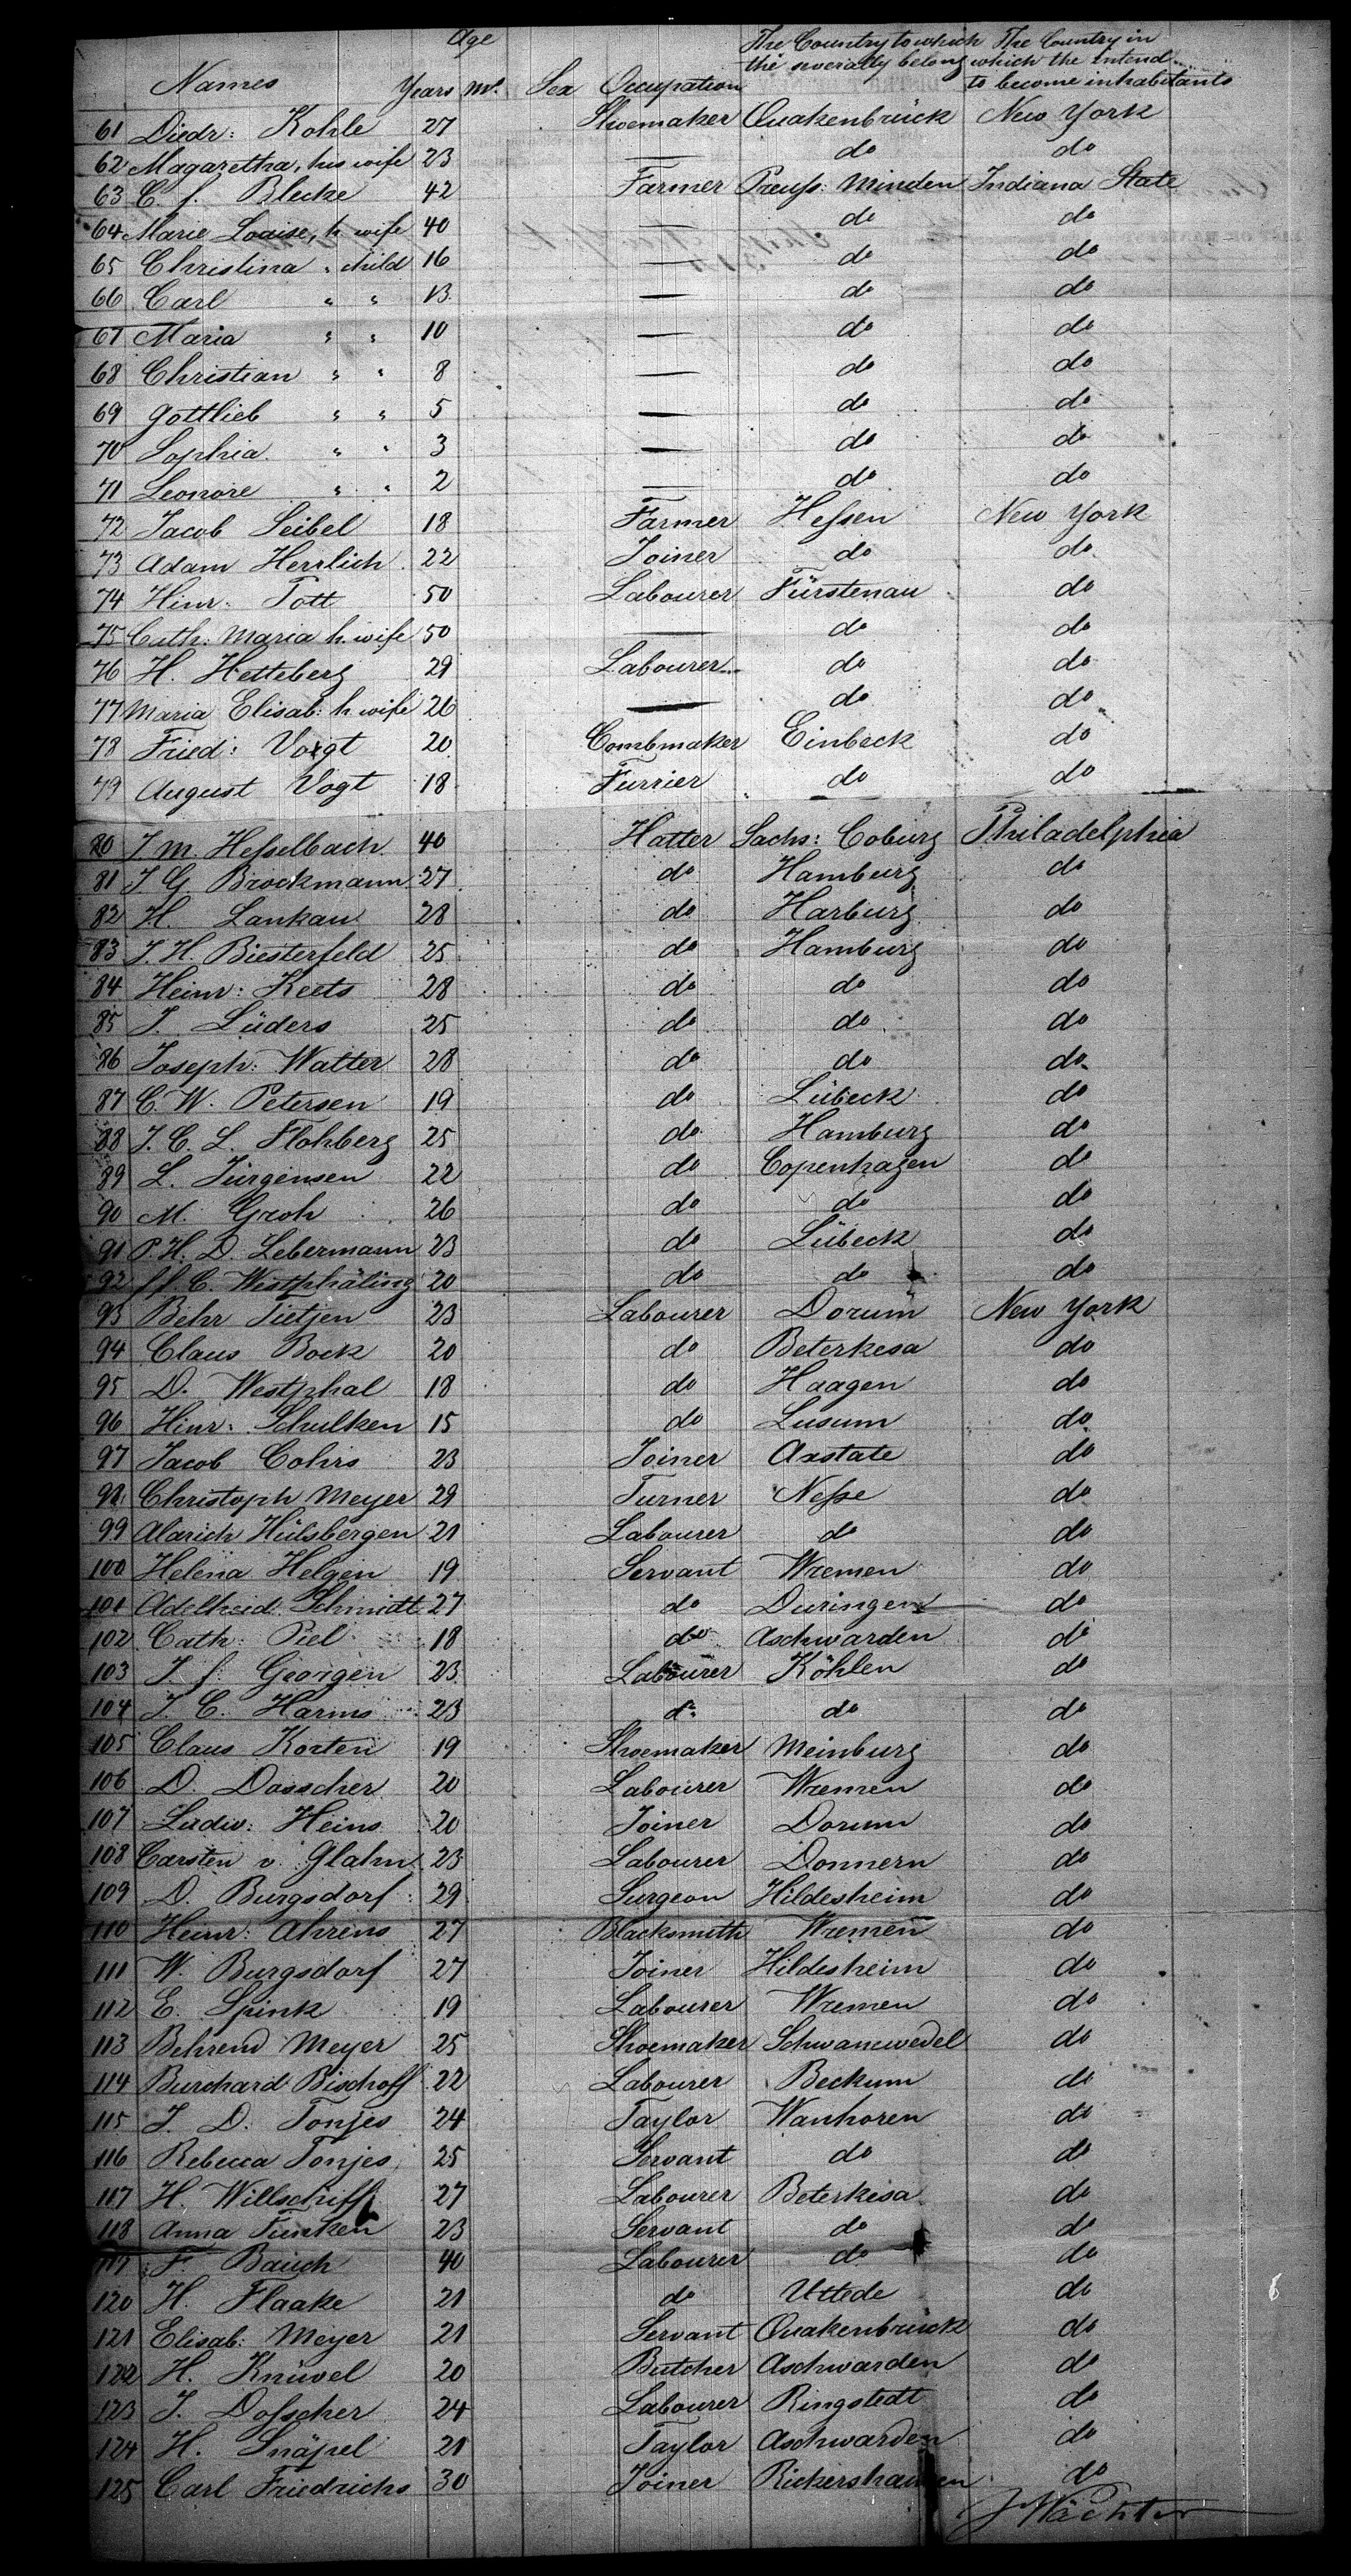 Age The Country to which The Country in
the severally belong which the intend
Names Years Ms. Sex Occupation to become inhabitants
61 Diedr: Kohle 27 Shoemaker Quakenbrück New York
62 Magaretha, his wife 23 — do do
63 C. f. Blecke 42 Farmer Preuſs: Minden Indiana State
64 Marie Louise, h wife 40 — do do
65 Christina " child 16 — do do
66 Carl " " 13 — do do
67 Maria " " 10 — do do
68 Christian " " 8 — do do
69 Gottlieb " " 5 — do do
70 Sophia " " 3 — do do
71 Leonore " " 2 — do do
72 Jacob Seibel 18 Farmer Heſsen New York
73 Adam Herrlich 22 Joiner do do
74 Hinr: Tott 50 Labourer Fürstenau do
75 Cath: Maria h. wife 50 — do do
76 H. Hetteberg 29 Labourer do do
77 Maria Elisab: h wife 26 — do do
78 Fried: Voigt 20 Combmaker Einbeck do
79 August Vogt 18 Furrier do do
80 J. M. Heſselbach 40 Hatter Sachs: Coburg Philadelphia
81 J. G. Brockmann 27 do Hamburg do
82 H. Lankau 28 do Harburg do
83 J. H. Biesterfeld 25 do Hamburg do
84 Heinr: Keets 28 do do do
85 J. Lüders 25 do do do
86 Joseph: Walter 28 do do do
87 C. W. Petersen 19 do Lübeck do
88 J. C. L. Flohberg 25 do Hamburg do
89 L. Jürgensen 22 do Copenhagen do
90 M. Groh 26 do do do
91 P. H. D. Lebermann 23 do Lübeck do
92 f f C. Westphäling 20 do do do
93 Behr Tietjen 23 Labourer Dorum New York
94 Claus Bock 20 do Beterkesa do
95 D. Westphal 18 do Haagen do
96 Hinr: Schulken 15 do Lusum do
97 Jacob Cohrs 23 Joiner Axstate do
98 Christoph Meyer 29 Turner Neſse do
99 Alarich Hülsbergen 21 Labourer do do
100 Helena Helgen 19 Servant Wremen do
101 Adelheid Schmidt 27 do Duringen do
102 Cath: Piel 18 do Aschwarden do
103 J. f. Georgen 23 Labourer Köhlen do
104 J. C. Harms 23 do do do
105 Claus Korten 19 Shoemaker Meinburg do
106 D. Dosscher 20 Labourer Wremen do
107 Ludw: Heins 20 Joiner Dorum do
108 Carsten v. Glahn 23 Labourer Donnern do
109 D. Burgsdorf 29 Surgeon Hildesheim do
110 Heinr: Ahrens 27 Blacksmith Wremen do
111 W. Burgsdorf 27 Joiner Hildesheim do
112 E. Spink 19 Labourer Wremen do
113 Behrend Meyer 25 Shoemaker Schwanewedel do
114 Burchard Bischoff 22 Labourer Beckum do
115 J. D. Tonjes 24 Taylor Wanhoren do
116 Rebecca Tonjes 25 Servant do do
117 H. Willschiff 27 Labourer Beterkesa do
118 Anna Tienken 23 Servant do do
119 F. Bauch 40 Labourer do do
120 H. Flaake 21 do Uttede do
121 Elisab: Meyer 21 Servant Quakenbrück do
122 H. Knüvel 20 Butcher Aschwarden do
123 J. Doſscher 24 Labourer Ringstedt do
124 H. Snäpel 21 Taylor Aschwarden do
125 Carl Friedrichs 30 Joiner Rickershausen do
J Wächter